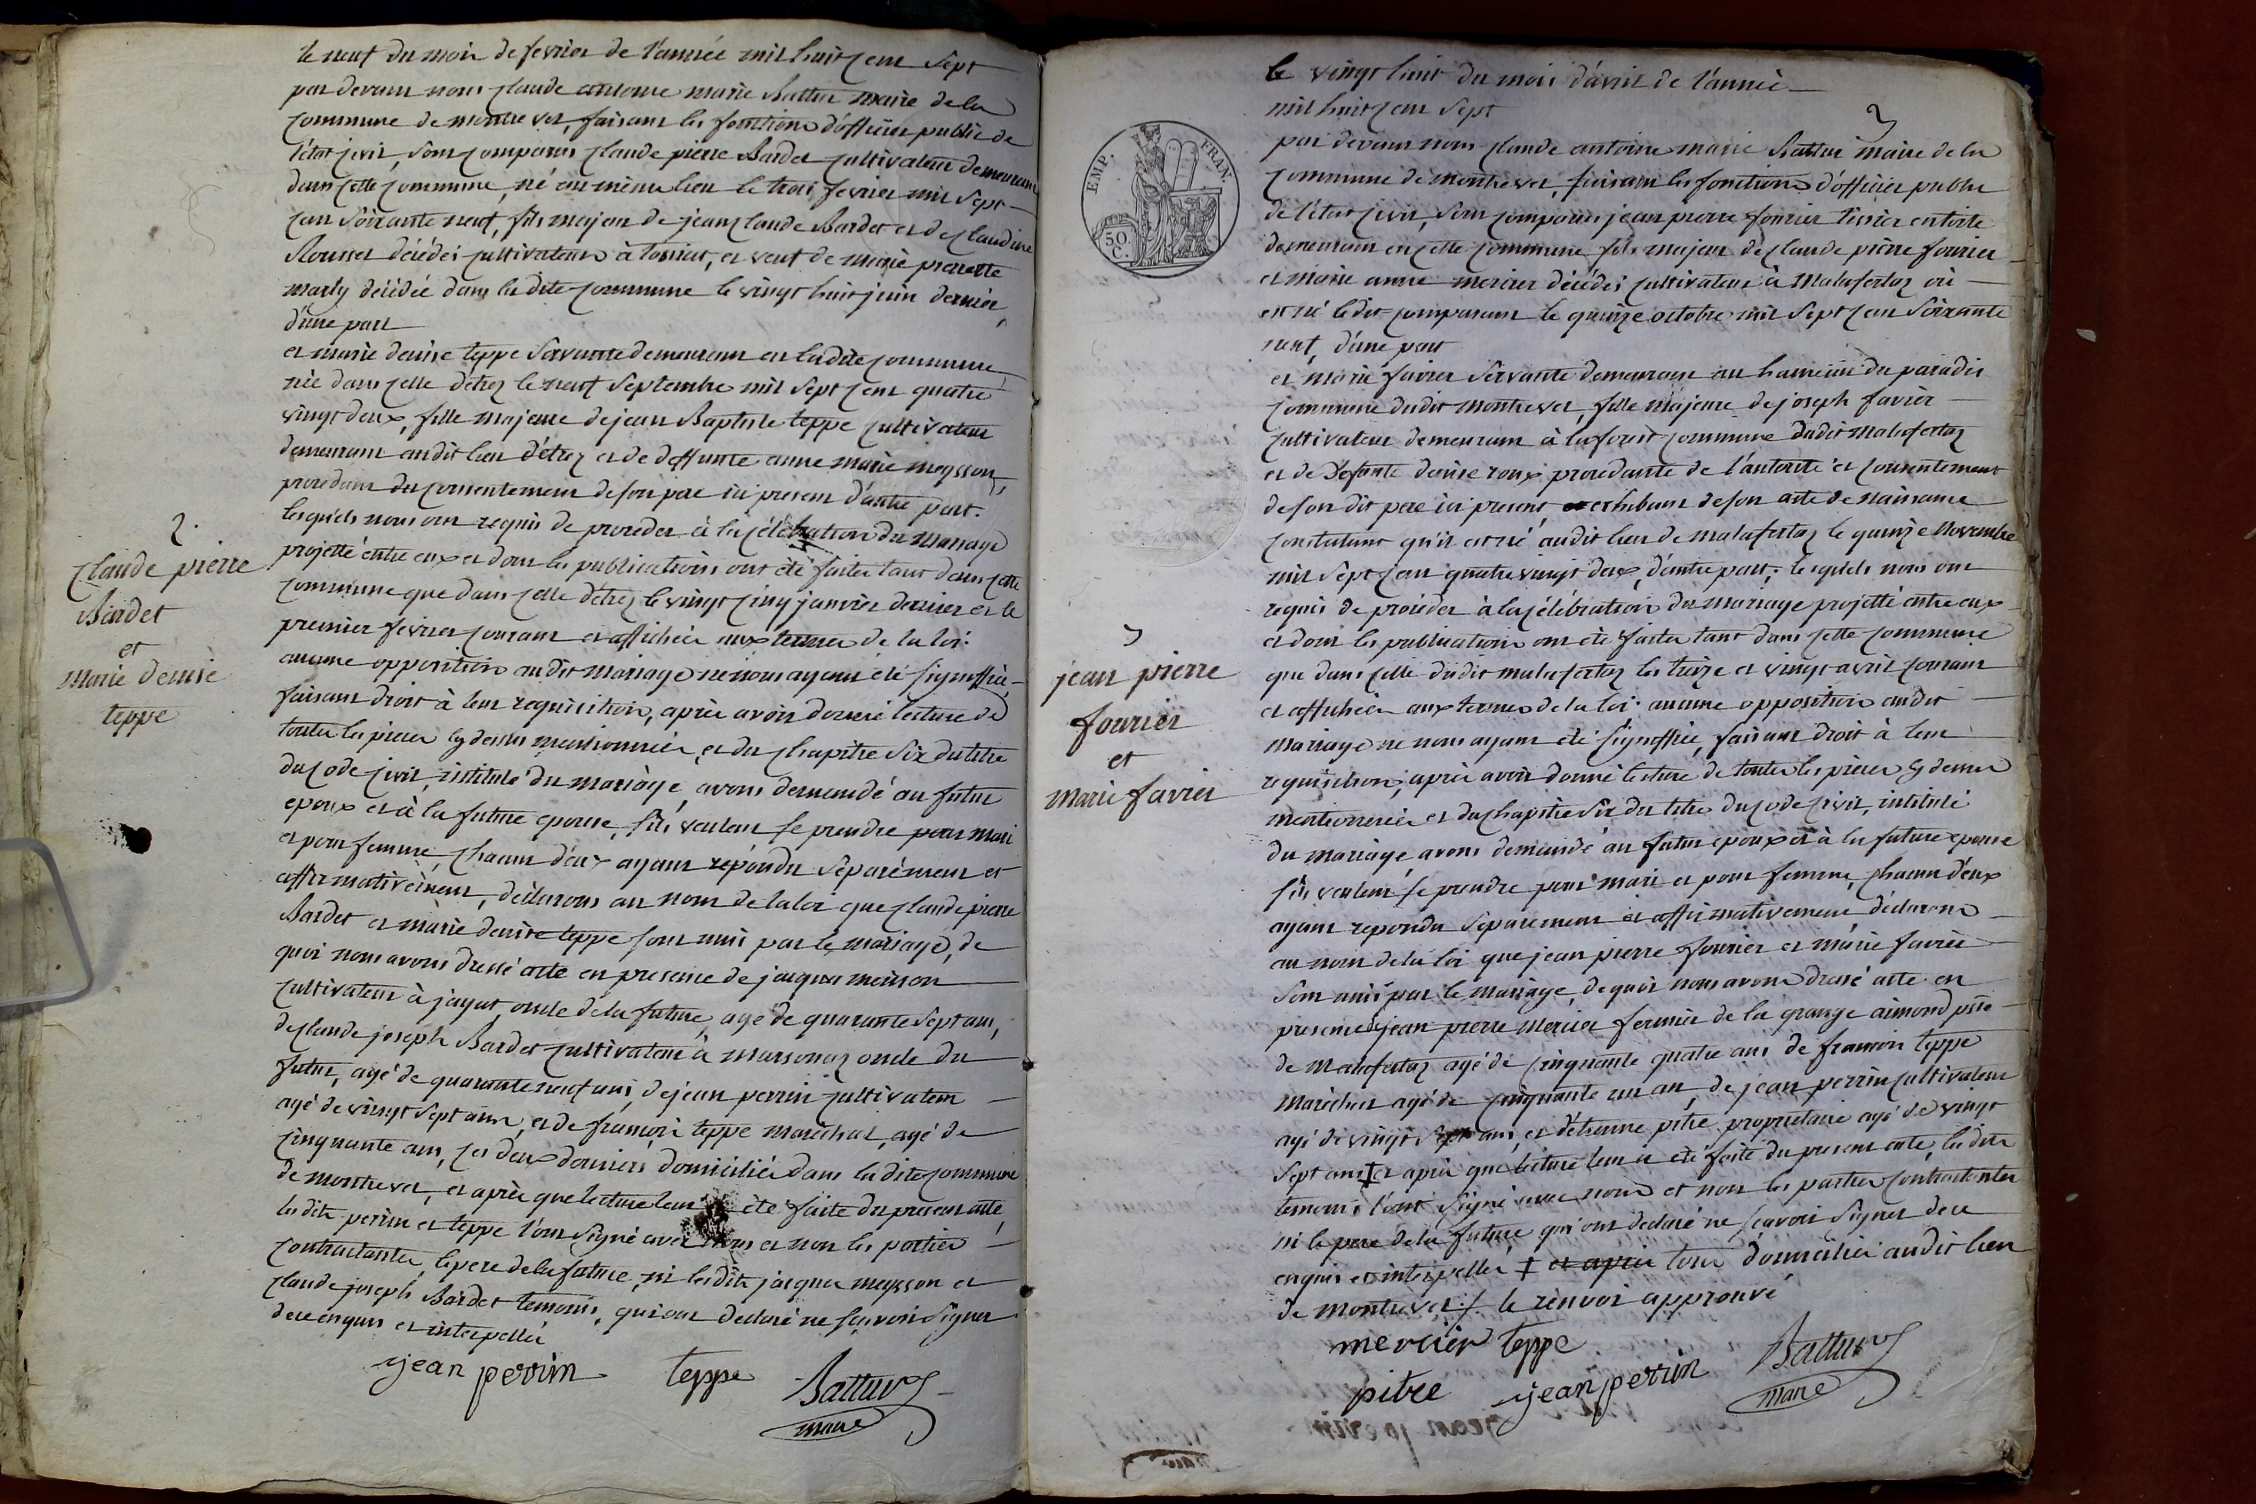 le neuf du mois de fevrier de l'année mil huit cent sept
par devant nous claude antoine marie Battur maire de la
commune de montrevel, faisant les fonctions d'officier public de
l'état civil, sont comparus claude pierre Bardet cultivateur demeurant
dans cette commune, né au même lieu le trois fevrier mil sept
cent soixante neuf, fils majeur de jean claude Bardet et de claudine
Rousset décédés cultivateurs à , et veuf de marie pierrette
marly décédée dans la dite commune le vingt huit juin dernier,
d'une part
et marie denise teppe servante demeurant en la dite commune
née dans celle d'étrez le neuf septembre mil sept cent quatre
vingt deux, fille majeure de jean Baptiste teppe cultivateur
demeurant au dit lieu d'étrez et de deffunte anne marie meysson,
procedant du consentement de son pere ici present d'autre part.
lesquels nous ont requis de proceder à la célébration du mariage
projetté entre eux et dont les publications ont été faites tant dans cette
commune que dans celle d'étrez le vingt cinq janvier dernier et le
premier fevrier courant et affichées aux termes de la loi:
aucune opposition au dit mariage ne nous ayant été signiffiée,
faisant droit à leur requisition, après avoir donné lecture de
toutes les pieces cy dessus mentionnées, et du chapitre six du titre
du code civil, intitulé du mariage, avons demandé au futur
epoux et à la future epouse, s'ils veulent se prendre pour mari
et pour femme, chacun d'eux ayant répondu séparément et
affirmativement, déclarons au nom de la loi que claude pierre
Bardet et marie denise teppe sont unis par le mariage, de
quoi nous avons dressé acte en presence de jacques meisson
cultivateur à jayat, oncle de la future, agé de quarante sept ans,
de claude joseph Bardet cultivateur à marsonas oncle du
futur, agé de quarante neuf ans, de jean perrin cultivateur
agé de vingt sept ans, et de françois teppe maréchal, agé de
cinquante ans, ces deux derniers domiciliés dans la dite commune
de montrevel, et après que lecture leur a été faite du present acte,
les dits perrin et teppe l'ont signé avec nous et non les parties
contractantes, le pere de la future, ni les dits jacques meysson et
claude joseph Bardet temoins, qui ont declaré ne sçavoir signer
de ce enquis et interpellés
jean perrin teppe Battur
maire
2.
claude pierre
Bardet
et
marie denise
teppe
3
le vingt huit du mois d'avril de l'année
mil huit cent sept
par devant nous claude antoine marie Battur maire de la
commune de montrevel, faisant les fonctions d'officier public
de l'état civil, sont comparus jean pierre fourier tissier en toile
demeurant en cette commune fils majeur de claude pierre fourier
et marie anne mercier décédés cultivateurs à Malafertaz où
est né le dit comparant le quinze octobre mil sept cent soixante
neuf, d'une part
et marie favier servante demeurant au hameau du paradis
commune du dit montrevel, fille majeure de joseph favier
cultivateur demeurant à la forest commune du dit malafertaz
et de défunte denise roux procedante de l'autorité et consentement
de son dit pere ici present, et exhibant de son acte de naissance
constatant qu'il est né au dit lieu de malafertaz le quinze novembre
mil sept cent quatre vingt deux, d'autre part; lesquels nous ont
requis de procéder à la célébration du mariage projetté entre eux
et dont les publications ont été faites tant dans cette commune
que dans celle du dit malafertaz les treize et vingt avril courant
et affichées aux termes de la loi. aucune opposition au dit
mariage ne nous ayant été signiffiée, faisant droit à leur
requisition, après avoir donné lecture de toutes les pieces cy dessus
mentionnées et du chapitre six du titre du code civil, intitulé
du mariage, avons demandé au futur epoux et à la future epouse
s'ils veulent se prendre pour mari et pour femme, chacun d'eux
ayant repondu separement et affirmativement déclarons
au nom de la loi que jean pierre fourier et marie favier
sont unis par le mariage, de quoi nous avons dressé acte en
presence de jean pierre mercier fermier de la grange aimond psse
de malafertaz agé de cinquante quatre ans de françois teppe
maréchal agé de cinquante un an, de jean perrin cultivateur
agé de vingt sept ans, et d'étienne pitre proprietaire agé de vingt
sept ans ‡ et après que lecture leur a été faite du present acte, les dits
temoins l'ont signé avec nous et non les parties contractantes
ni le pere de la future qui ont declaré ne sçavoir signer de ce
enquis et interpellés ‡ et après tous domiciliés au dit lieu
de montrevel ‡ le renvoi approuvé
mercier teppe Battur
pitre jean perrin maire
3
jean pierre
fourier
et
marie favier
EMP. FRAN.
50
C.